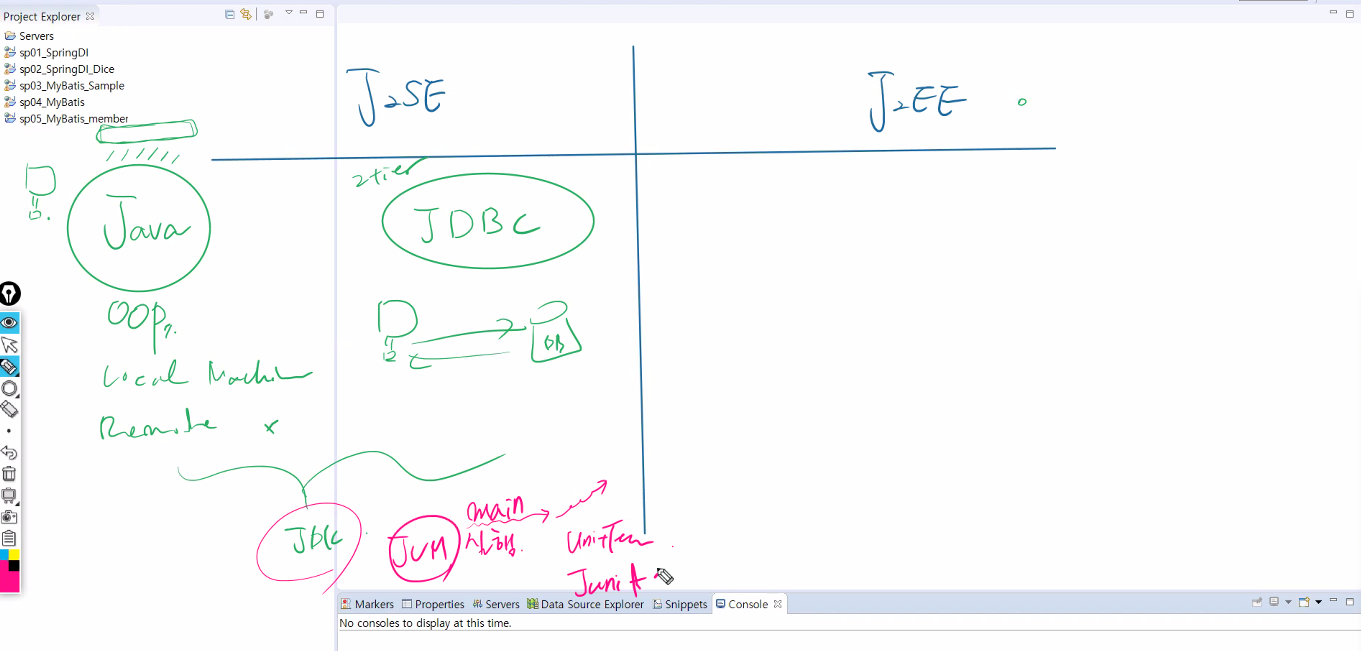 Project Explorer
Servers
sp01_SpringDI
sp02_SpringDI_Dice
sp03_MyBatis_Sample
sp04_MyBatis
sp05_MyBatis_member
J2SE
J2EE
2tier
Java
JDBC
OOP
DB
Local Machin
Remote x
JDK
JVM
main
실행.
UnitTest
Junit
Markers Properties Servers Data Source Explorer Snippets Console
No consoles to display at this time.